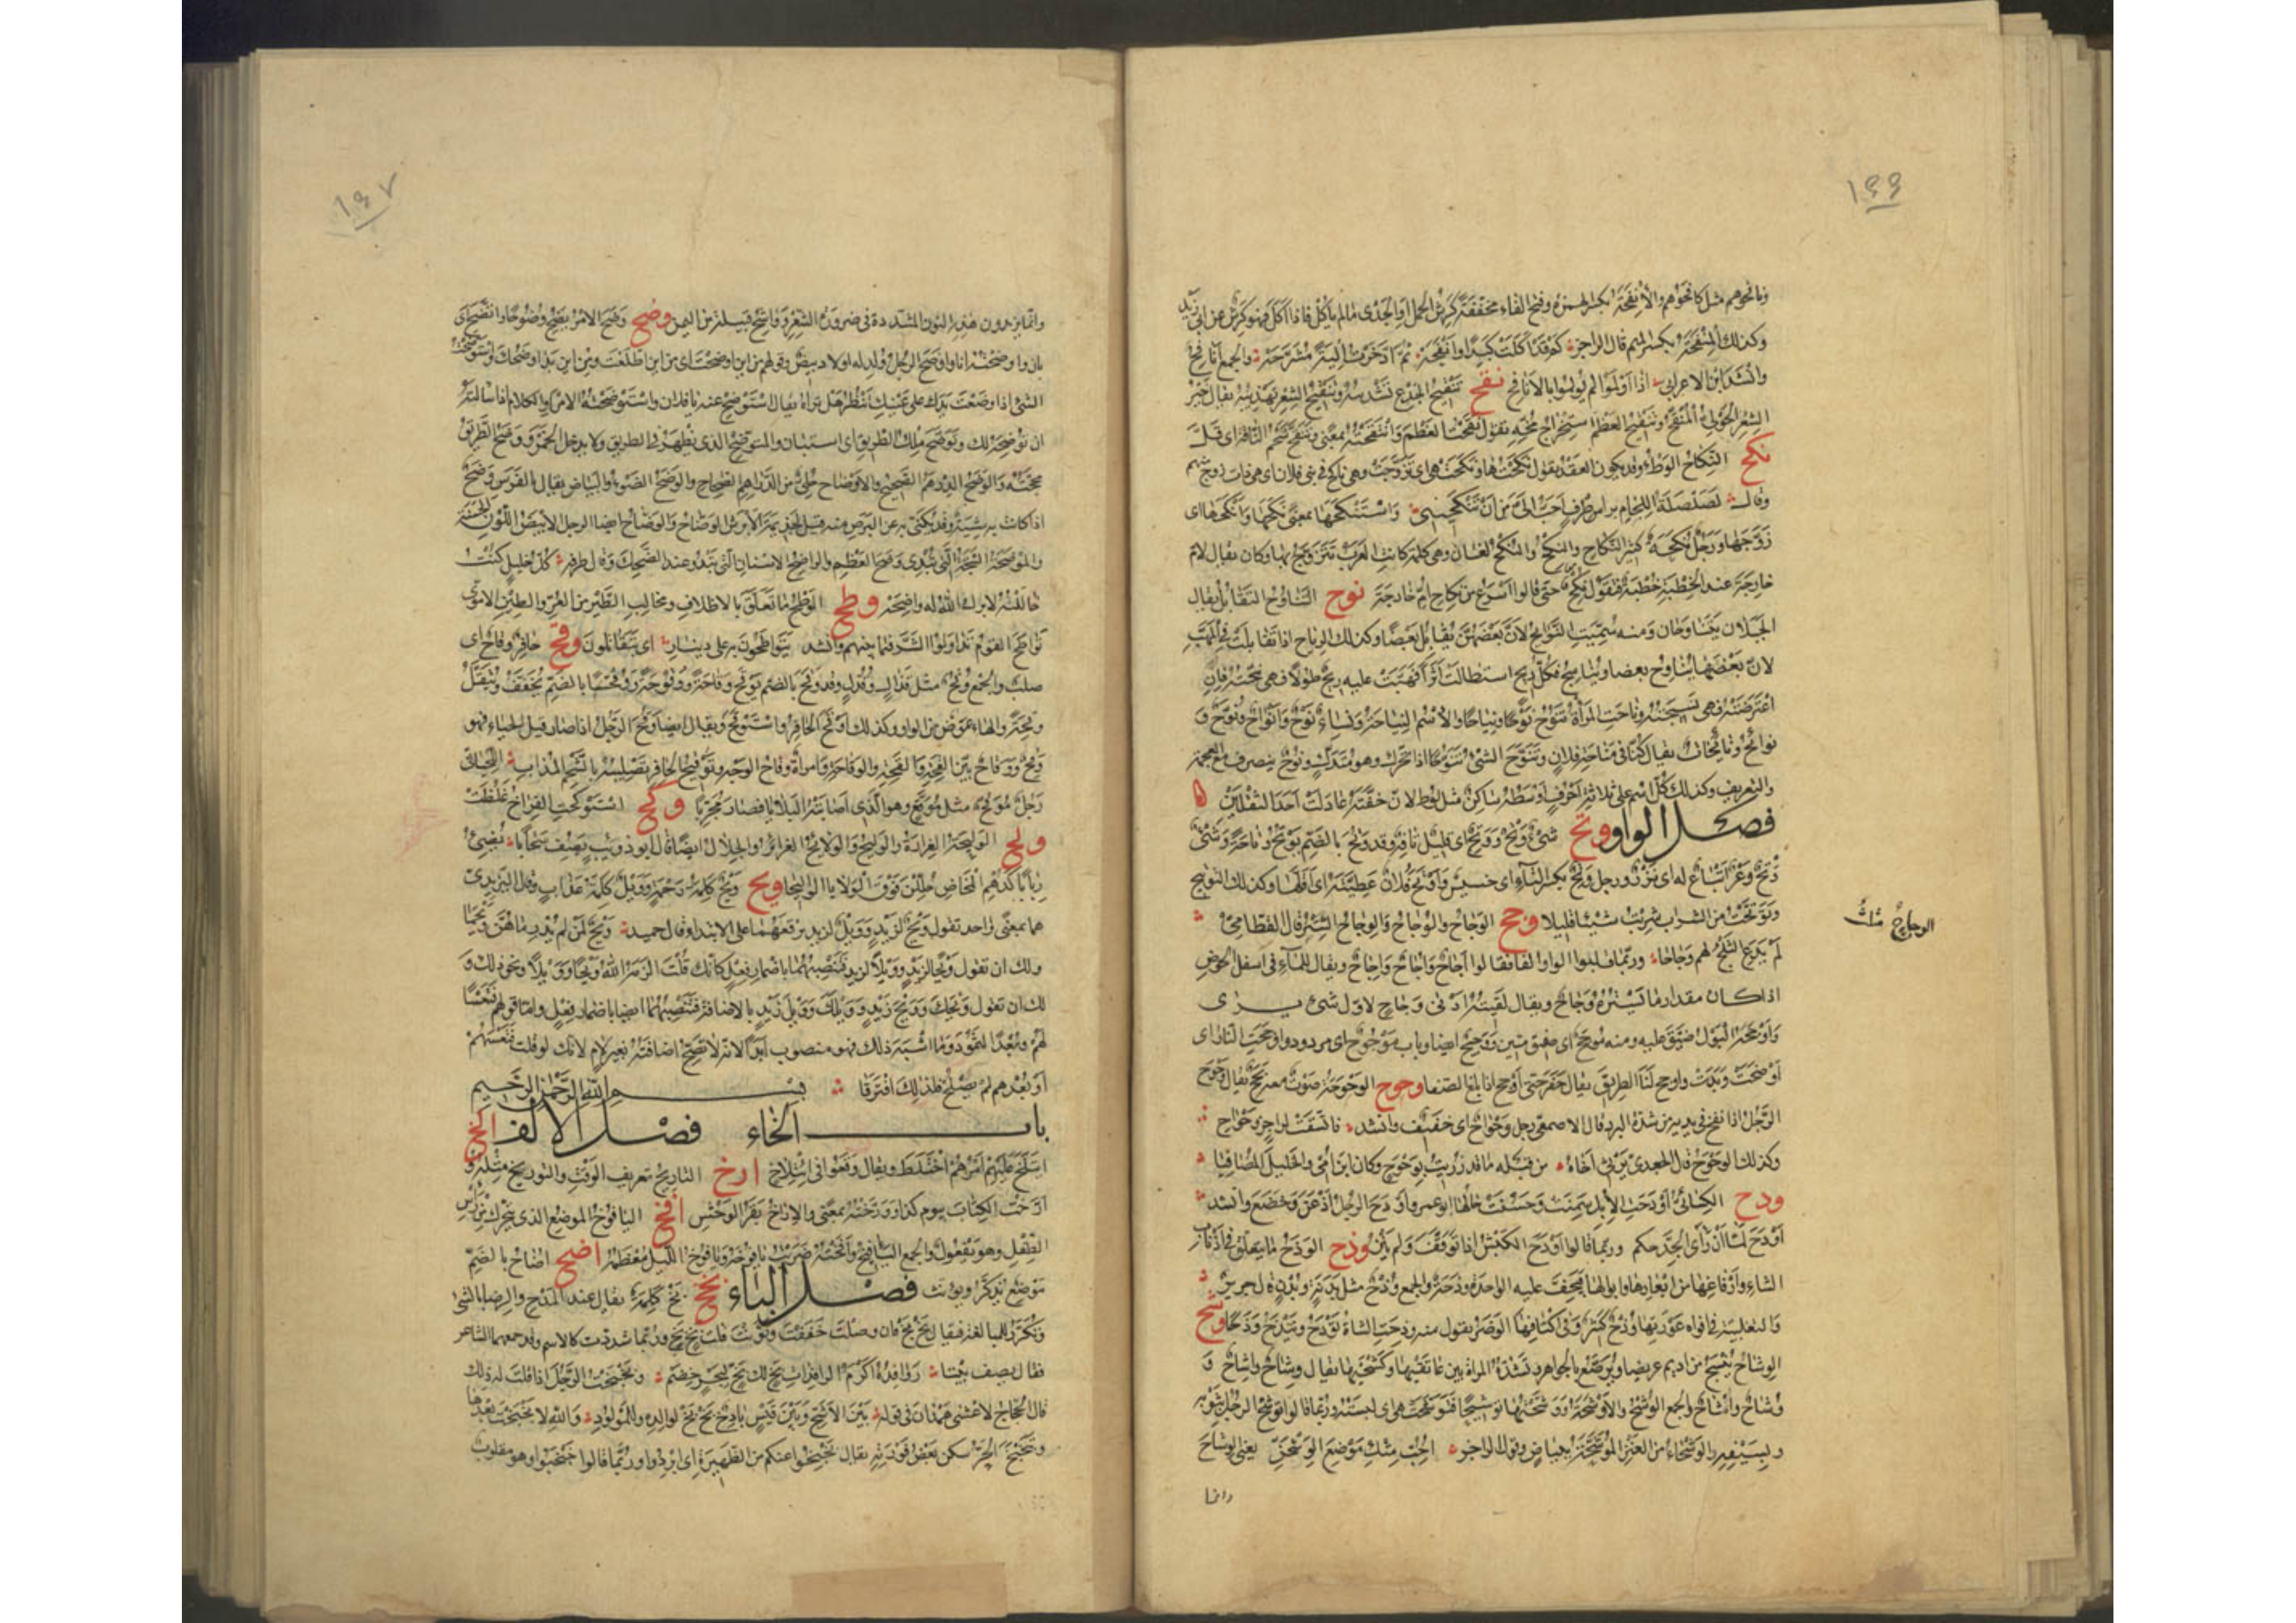 ١٤٦
وناتحوهم مثل كاتحوهم والإنفحة بكسر الهمزة وفتح الفاء مخففة كرش الحمل او الجدى ما لم يأكل فاذا اكل فهو كرش عن ابى زيد
وكذلك المنفحة بكسر الميم قال الراجز كم قد اكلت كبدا وانفحة ثم ادخرت الية مشرحة والجمع انافح
وانشد ابن الاعرابى اذا اولموا لم يولموا بالانافح نقح تنقيح الجذع تشذيبه وتنقيح الشعر تهذيبه يقال خير
الشعر الحولى المنقح وتنقيح العظم استخراج مخه تقول نقحت العظم وانتقحته بمعنى وتنقح شحم الناقة اى قل
نكح النكاح الوطء وقد يكون العقد تقول نكحتها ونكحت هى اى تزوجت وهى ناكح فى بنى فلان اى هى ذات زوج منهم
وقال لصلصلة اللجام براس طرف احب الى من ان تنكحينى واستنكحها بمعنى نكحها وانكحها اى
زوجها ورجل نكحة كثير النكاح والنكح والنكح لغتان وهى كلمة كانت العرب تتزوج بها وكان يقال لام
خارجة عند الخطبة خطب فتقول نكح حتى قالوا اسرع من نكاح ام خارجة نوح التناوح التقابل يقال
الجبلان يتناوحان ومنه سميت النوائح لان بعضهن يقابل بعضا وكذلك الرياح اذا تقابلت فى المهب
لان بعضها يناوح بعضا ويناسج فكل ريح استطالت اثرا فهبت عليه ريح طولا فهى نيحته فان
اعترضته فهى نسيجته وناحت المرأة تنوح نوحا ونياحا والاسم النياحة ونساء نوح وانواح ونوح و
نوائح ونائحات يقال كنا فى مناحة فلان وتنوح الشئ تنوحا اذا تحرك وهو متدل ونوح ينصرف مع العجمة
والتعريف وكذلك كل اسم على ثلاثة احرف اوسطه ساكن مثل لوط لان خفته عادلت احد الثقلين
فصل الواو وتح شئ وتح ووتح اى قليل تافه وقد وتح بالضم يوتح وتاحة وشئ
وتح وعر اتباع له اى نزر ورجل وتح بكسر التاء اى خسيس واوتح فلان عطيته اى اقلها وكذلك التوتيح
وتوتحت من الشراب شربت شيئا قليلا وجح الوجاح والوجاح والوجاح الستر قال القطامى
الوجاح مثلث
لم يدع الثلج لهم وجاحا وربما قلبوا الواو الفا فقالوا اجاح واجاح واجاح ويقال للماء فى اسفل الحوض
اذا كان مقدار ما يستره وجاح ويقال لقيته ادنى وجاح لاول شئ يرى
واوجحه البول ضيق عليه ومنه ثوب موجح اى صفيق متين ووجيح ايضا وباب موجوح اى مردود واوجحت النار اى
اوضحت وبدت واوجح لنا الطريق يقال حفر حتى اوجح اذا بلغ الصفا وحوح الوحوحة صوت معه بحح يقال وحوح
الرجل اذا نفخ فى يديه من شدة البرد قال الاصمعى رجل وحواح اى خفيف وانشد فاتسقت لزاجر وحواح
وكذلك الوحوح قال الجعدى يرثى اخاه من قبله ما قد رزيت بوحوح وكان ابن امى والخليل المصافيا
ودح الكسائى اودحت الابل سمنت وحسنت حالها ابو عمرو اودح الرجل اذعن وخضع وانشد
اودح لما ان رأى الجد حكم وربما قالوا اودح الكبش اذا توقف ولم ينز وذح الوذح ما يتعلق فى اذناب
الشاء وارفاغها من ابعارها وابوالها فيجف عليه الواحدة وذحة والجمع وذح مثل بدنة وبدن قال جرير
والتغلبية فى افواه عورتها وذح كثير وفى اكتافها الوضر يقول منه وذحت الشاة توذح وتيذح وذحا وشح
الوشاح ينسج من اديم عريضا ويرصع بالجواهر وتشده المراة بين عاتقيها وكشحيها يقال وشاح واشاح و
وشاح واشاح والجمع الوشح والاوشحة ووشحتها توشيحا فتوشحت هى اى لبسته وربما قالوا توشح الرجل بثوبه
وبسيفه والوشحاء من العنز الموشحة ببياض وقول الراجز احب منك موضع الوشحن يعنى الوشاح
وانما
١٤٧
وانما يزيدون هذه النون المشددة فى ضرورة الشعر وواشح قبيلة من اليمن وضح وضح الامر يضح وضوحا واتضح اى
بان واوضحته انا واوضح الرجل ولد له اولاد بيض وقولهم من اين اوضحت اى من اين طلعت ومن اين بدا وضحك واستوضحت
الشئ اذا وضعت يدك على عينيك تنظر هل تراه يقال استوضح عنه يا فلان واستوضحته الامر او الكلام اذا سالته
ان توضحه لك وتوضح ملك الطريق اى استبان والمتوضح الذى يظهر فى الطريق ولا يدخل الخمر ووضح الطريق
محجته والوضح الدرهم الصحيح والاوضاح حلى من الدراهم الصحاح والوضح الضوء والبياض يقال بالفرس وضح
اذا كانت به شية وقد يكنى به عن البرص ومنه قيل لجذيمة الابرش الوضاح والوضاح ايضا الرجل الابيض اللون الحسنه
والموضحة الشجة التى تبدى وضح العظم والواضحة الاسنان التى تبدو عند الضحك وقال طرفة كل خليل كنت
خاللته لا ترك الله له واضحة وطح الوطح ما تعلق بالاظلاف ومخالب الطير من العر والطين الاموى
تواطح القوم تداولوا الشر فيما بينهم وانشد يتواطحون به على دينار اى يتقاتلون وقح حافر وقاح اى
صلب والجمع وقح مثل قذال وقذل وقد وقح بالضم يوقح وقاحة ووقوحة ووقحا بالضم يخفف ويثقل
وقحة والهاء عوض من الواو وكذلك اوقح الحافر واستوقح ويقال ايضا وقح الرجل اذا صار قليل الحياء فهو
وقح ووقاح بين القحة والقحة والوقاحة وامراة وقاح الوجه وتوقيح الحافر تصليبه بالشحم المذاب اللحيانى
رجل موقح مثل موقع وهو الذى اصابته البلايا فصار مجربا وكح استوكحت الفراخ غلظت
ولح الوليحة الغرارة والوليح والولائح الغرائر والجلال ايضا قال ابو ذويب يصف سحابا يضئ
ربابا كدهم المخاض جللن فوق الولايا الوليحا ويح ويح كلمة رحمة وويل كلمة عذاب وقال اليزيدى
هما بمعنى واحد تقول ويح لزيد وويل لزيد ترفعهما على الابتداء قال حميد وويح لمن لم يدر ما هن ويحما
ولك ان تقول ويحا لزيد وويلا لزيد فتنصبهما باضمار فعل كانك قلت الزمه الله ويحا وويلا ونحو ذلك و
لك ان تقول ويحك وويح زيد وويلك وويل زيد بالاضافة فتنصبهما ايضا باضمار فعل واما قولهم تعسا
لهم وبعدا لثمود وما اشبه ذلك فهو منصوب ابدا لانه لا تصح اضافته بغير لام لانك لو قلت فتعسهم
او بعدهم لم يصلح فلذلك افترقا بسم الله الرحمن الرحيم
باب الخاء فصل الالف الخ
ايتلخ عليهم امرهم اختلط ويقال وقعوا فى ايتلاخ ارخ التاريخ تعريف الوقت والتوريخ مثله و
ارخت الكتاب بيوم كذا وورخته بمعنى والاراخ بقر الوحش افخ اليافوخ الموضع الذى يتحرك من راس
الطفل وهو يفعول والجمع اليافيخ وافخته ضربت يافوخه ويافوخ الليل معظمه اضخ اضاخ بالضم
موضع يذكر ويونث فصل الباء بخ بخ كلمة يقال عند المدح والرضا بالشئ
وتكرر للمبالغة فيقال بخ بخ فان وصلت خففت ونونت قلت بخ بخ وربما شددت كالاسم وقد جمعهما الشاعر
فقال يصف بيتا روافده اكرم الرافدات بخ لك بخ لبحر خضم وبخبخت الرجل اذا قلت له ذلك
قال الحجاج لاعشى همدان فى قوله بين الاشج وبين قيس باذخ بخ بخ لوالده وللمولود والله لا بخبخت بعدها
وتبخبخ الحر سكن بعض فورته يقال بخبخوا عنكم من الظهيرة اى ابردوا وربما قالوا خبخبوا وهو مقلوب